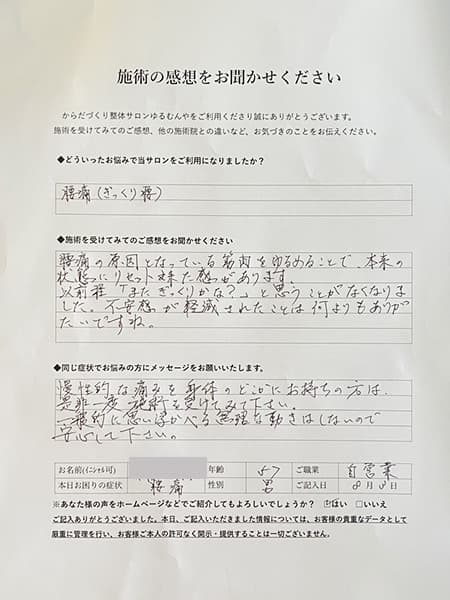 施術の感想をお聞かせください
からだづくり整体サロンゆるむんやをご利用くださり誠にありがとうございます。
施術を受けてみてのご感想、他の施術院との違いなど、お気づきのことをお伝えください。
◆どういったお悩みで当サロンをご利用になりましたか？
腰痛(ぎっくり腰)
◆施術を受けてみてのご感想をお聞かせください
腰痛の原因となっている筋肉をゆるめることで、本来の
状態にリセット出来た感があります。
以前程「またぎっくりかな？」と思うことがなくなりま
した。不安感が軽減されたことは何よりもありが
たいですね。
◆同じ症状でお悩みの方にメッセージをお願いいたします。
慢性的な痛みを身体のどこかにお持ちの方は、
是非一度施術を受けてみて下さい。
一般的に思い浮かべる無理な動きはしないので
安心して下さい。
お名前(イニシャル可) 年齢 57 ご職業 自営業
本日お困りの症状 腰痛 性別 男 ご記入日 8月8日
※あなた様の声をホームページなどでご紹介してもよろしいでしょうか？ ☑はい □いいえ
ご記入ありがとうございました。本日、ご記入いただきました情報については、お客様の貴重なデータとして
厳重に管理を行い、お客様ご本人の許可なく開示・提供することは一切ございません。